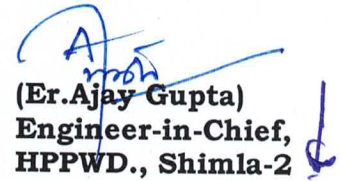 (Er.Ajay Gupta)
Engineer-in-Chief,
HPPWD., Shimla-2